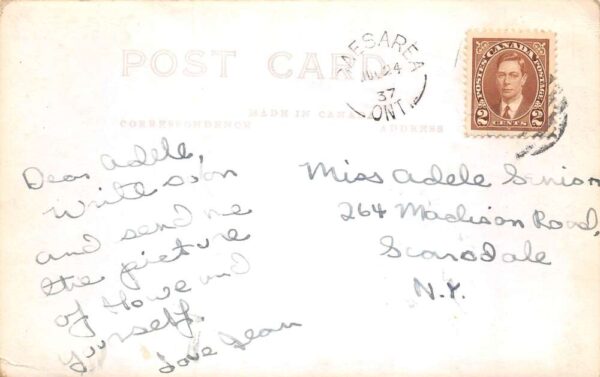 POST CARD
MADE IN CANADA
CORRESPONDENCE
ADDRESS
CAESAREA
24
37
ONT.
POSTES CANADA POSTAGE
2 CENTS 2
Dear Adele,
Write soon
and send me
the picture
of Howe and
yourself.
Love Jean
Miss Adele
264 Madison Road,
Scarsdale
N.Y.